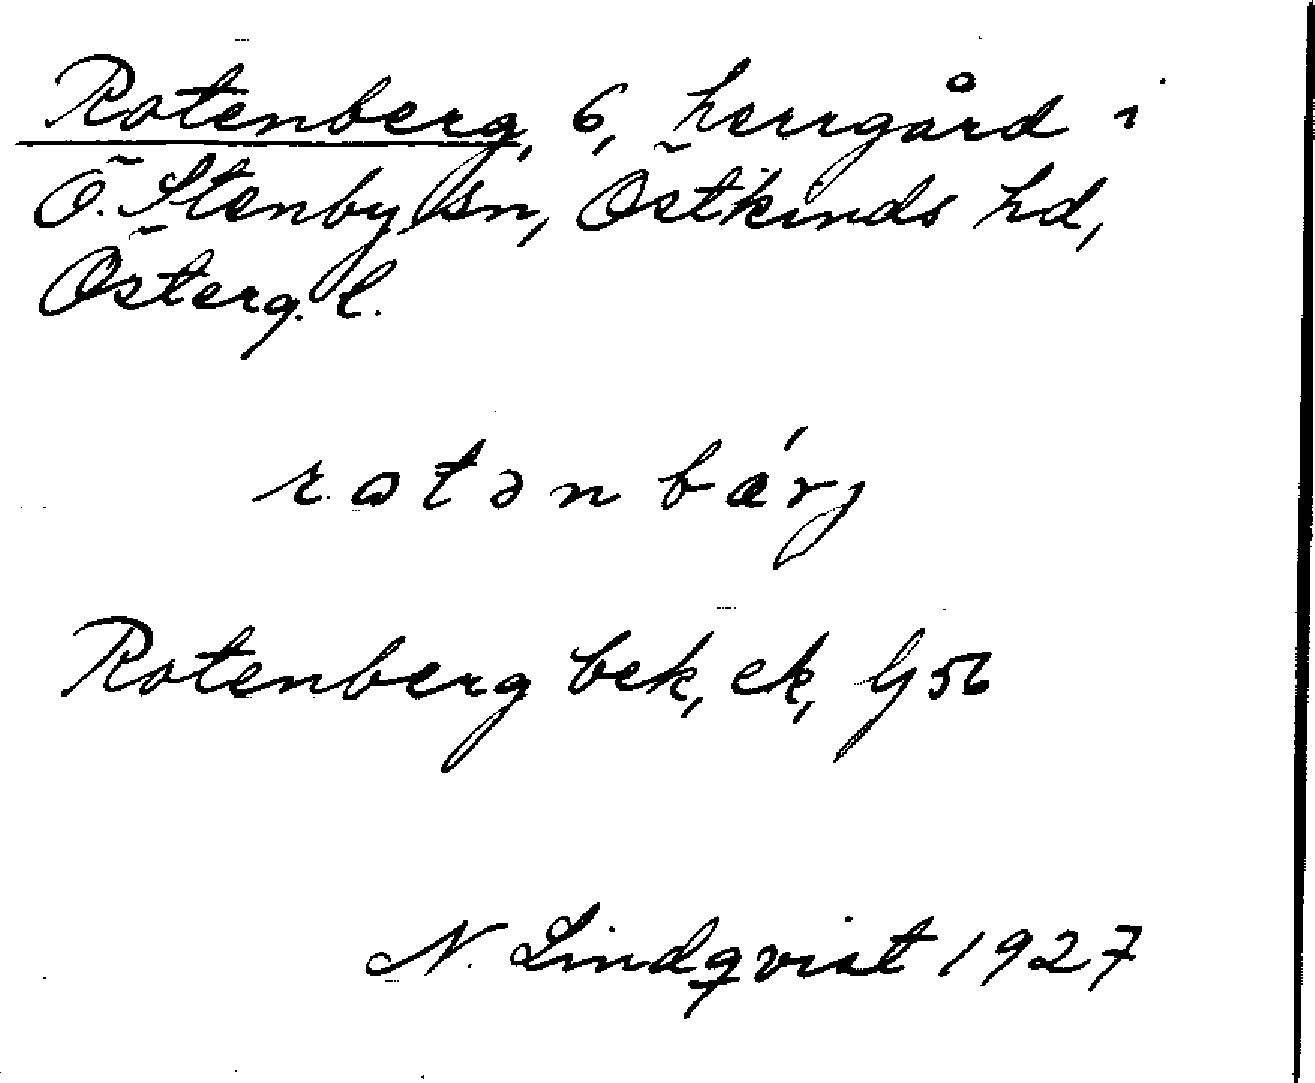 Rotenberg, 6, herrgård i
Ö. Stenby sn, Östkinds hd,
Österg. l.
rotənbárj
Rotenberg bek, ek, Gj 56
N. Lindqvist 1927